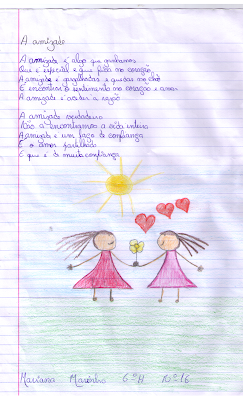 A amizade
A amizade é algo que ganhamos
Que é especial e que fica no coração
A amizade é gargalhadas e quedas no chão
É encontrar o sentimento no coração e amar
A amizade é a razão
A amizade verdadeira
Não a encontramos a vida inteira
Amizade é um laço de confiança
É o amor partilhado
E que é de muita confiança
Mariana Marinho 6ºH Nº16